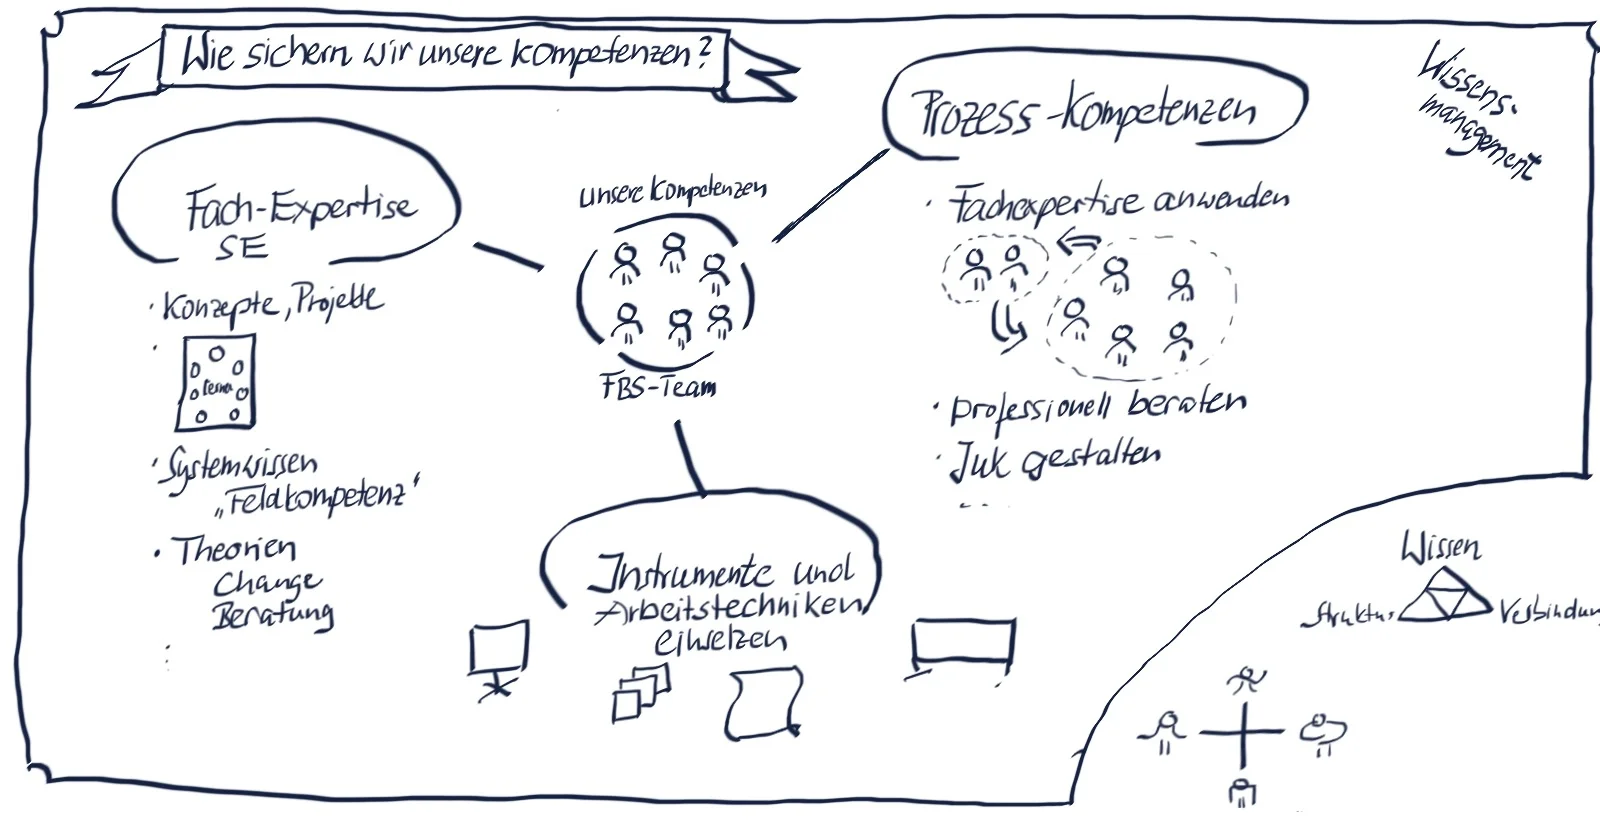 Wie sichern wir unsere Kompetenzen?
Wissens-
management
Prozess-Kompetenzen
Fach-Expertise
SE
unsere Kompetenzen
FBS-Team
• Konzepte, Projekte
•
• Systemwissen
„Feldkompetenz“
• Theorien
Change
Beratung
• Fachexpertise anwenden
• professionell beraten
• JuK gestalten
...
Instrumente und
Arbeitstechniken
einsetzen
Wissen
Struktur
Verbindun